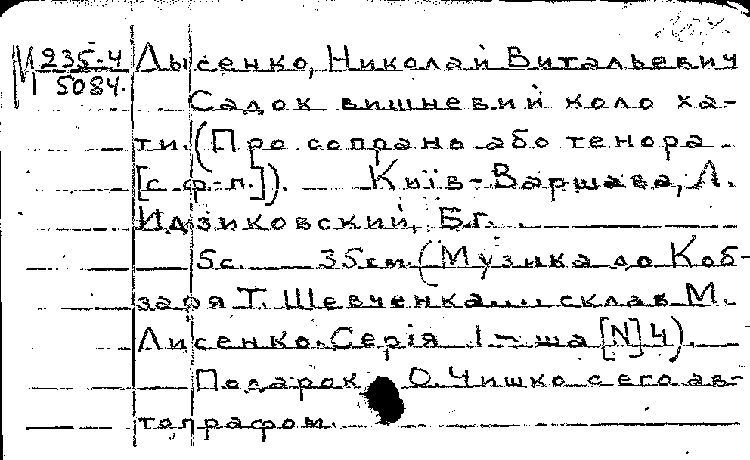 М 235-4 Лысенко, Николай Витальевич
5084.
Садок вишневий коло ха-
ти. (Про сопрано або тенора
[с ф-п.]). Київ-Варшава, Л.
Идзиковский, Б.г.
5с. 35см. (Музика до Коб-
заря Т. Шевченка.... склав М.
Лисенко. Серія 1-ша [N] 4).
Подарок О. Чишко с его ав-
тографом.